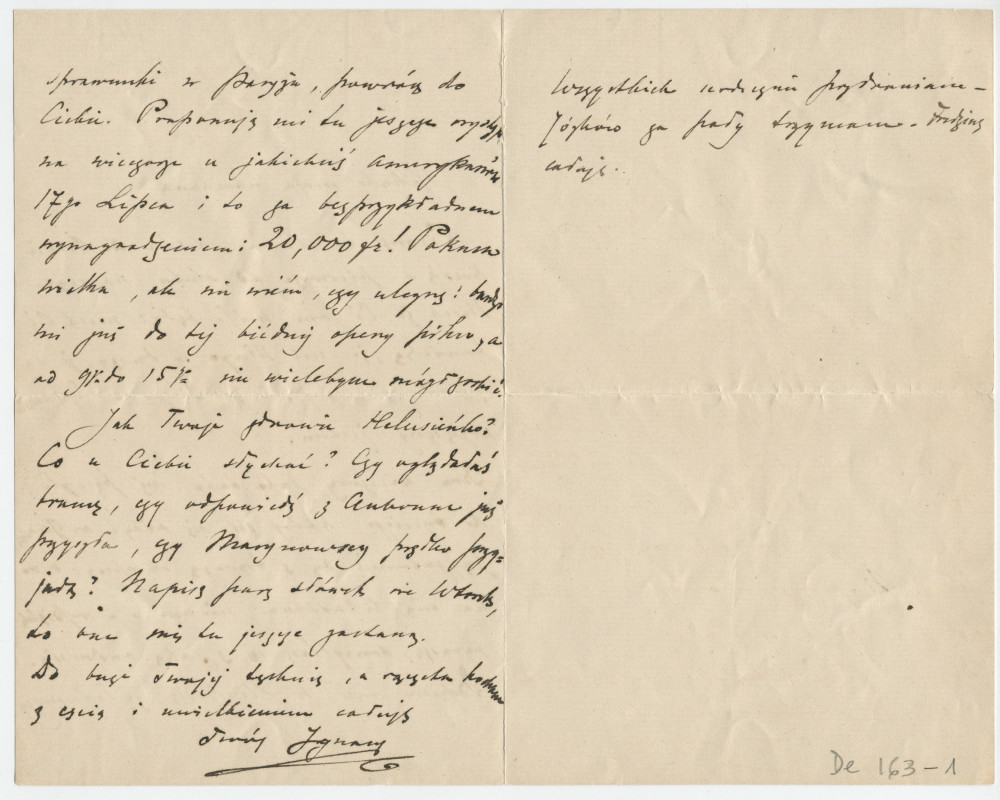 sprawunki w Paryżu, powrócę do
Ciebie. Proponują mi tu jeszcze występ
na wieczorze u jakichciś Amerykanów
17go Lipca i to za bezprzykładnem
wynagrodzeniem: 20,000 fr! Pokusa
wielka, ale nie wiem, czy ulegnę! bardzo
mi już do tej biédnej opery pilno, a
od 9go do 15go nie wielebym mógł zrobić.
Jak Twoje zdrowie Helusieńko?
Co u Ciebie słychać? Czy oglądałaś
trawę, czy odpowiedź z Aubonne już
przyszła, czy Marynowscy prędko przy-
jadą? Napisz parę słówek we Wtorek,
to one mię tu jeszcze zastaną.
Do buzi Twojej tęsknię, a rączęta
z czcią i uwielbieniem całuję
Twój Ignacy
Wszystkich serdecznie pozdrawiam –
Józków za pady trzymam –
całuję.
De 163-1